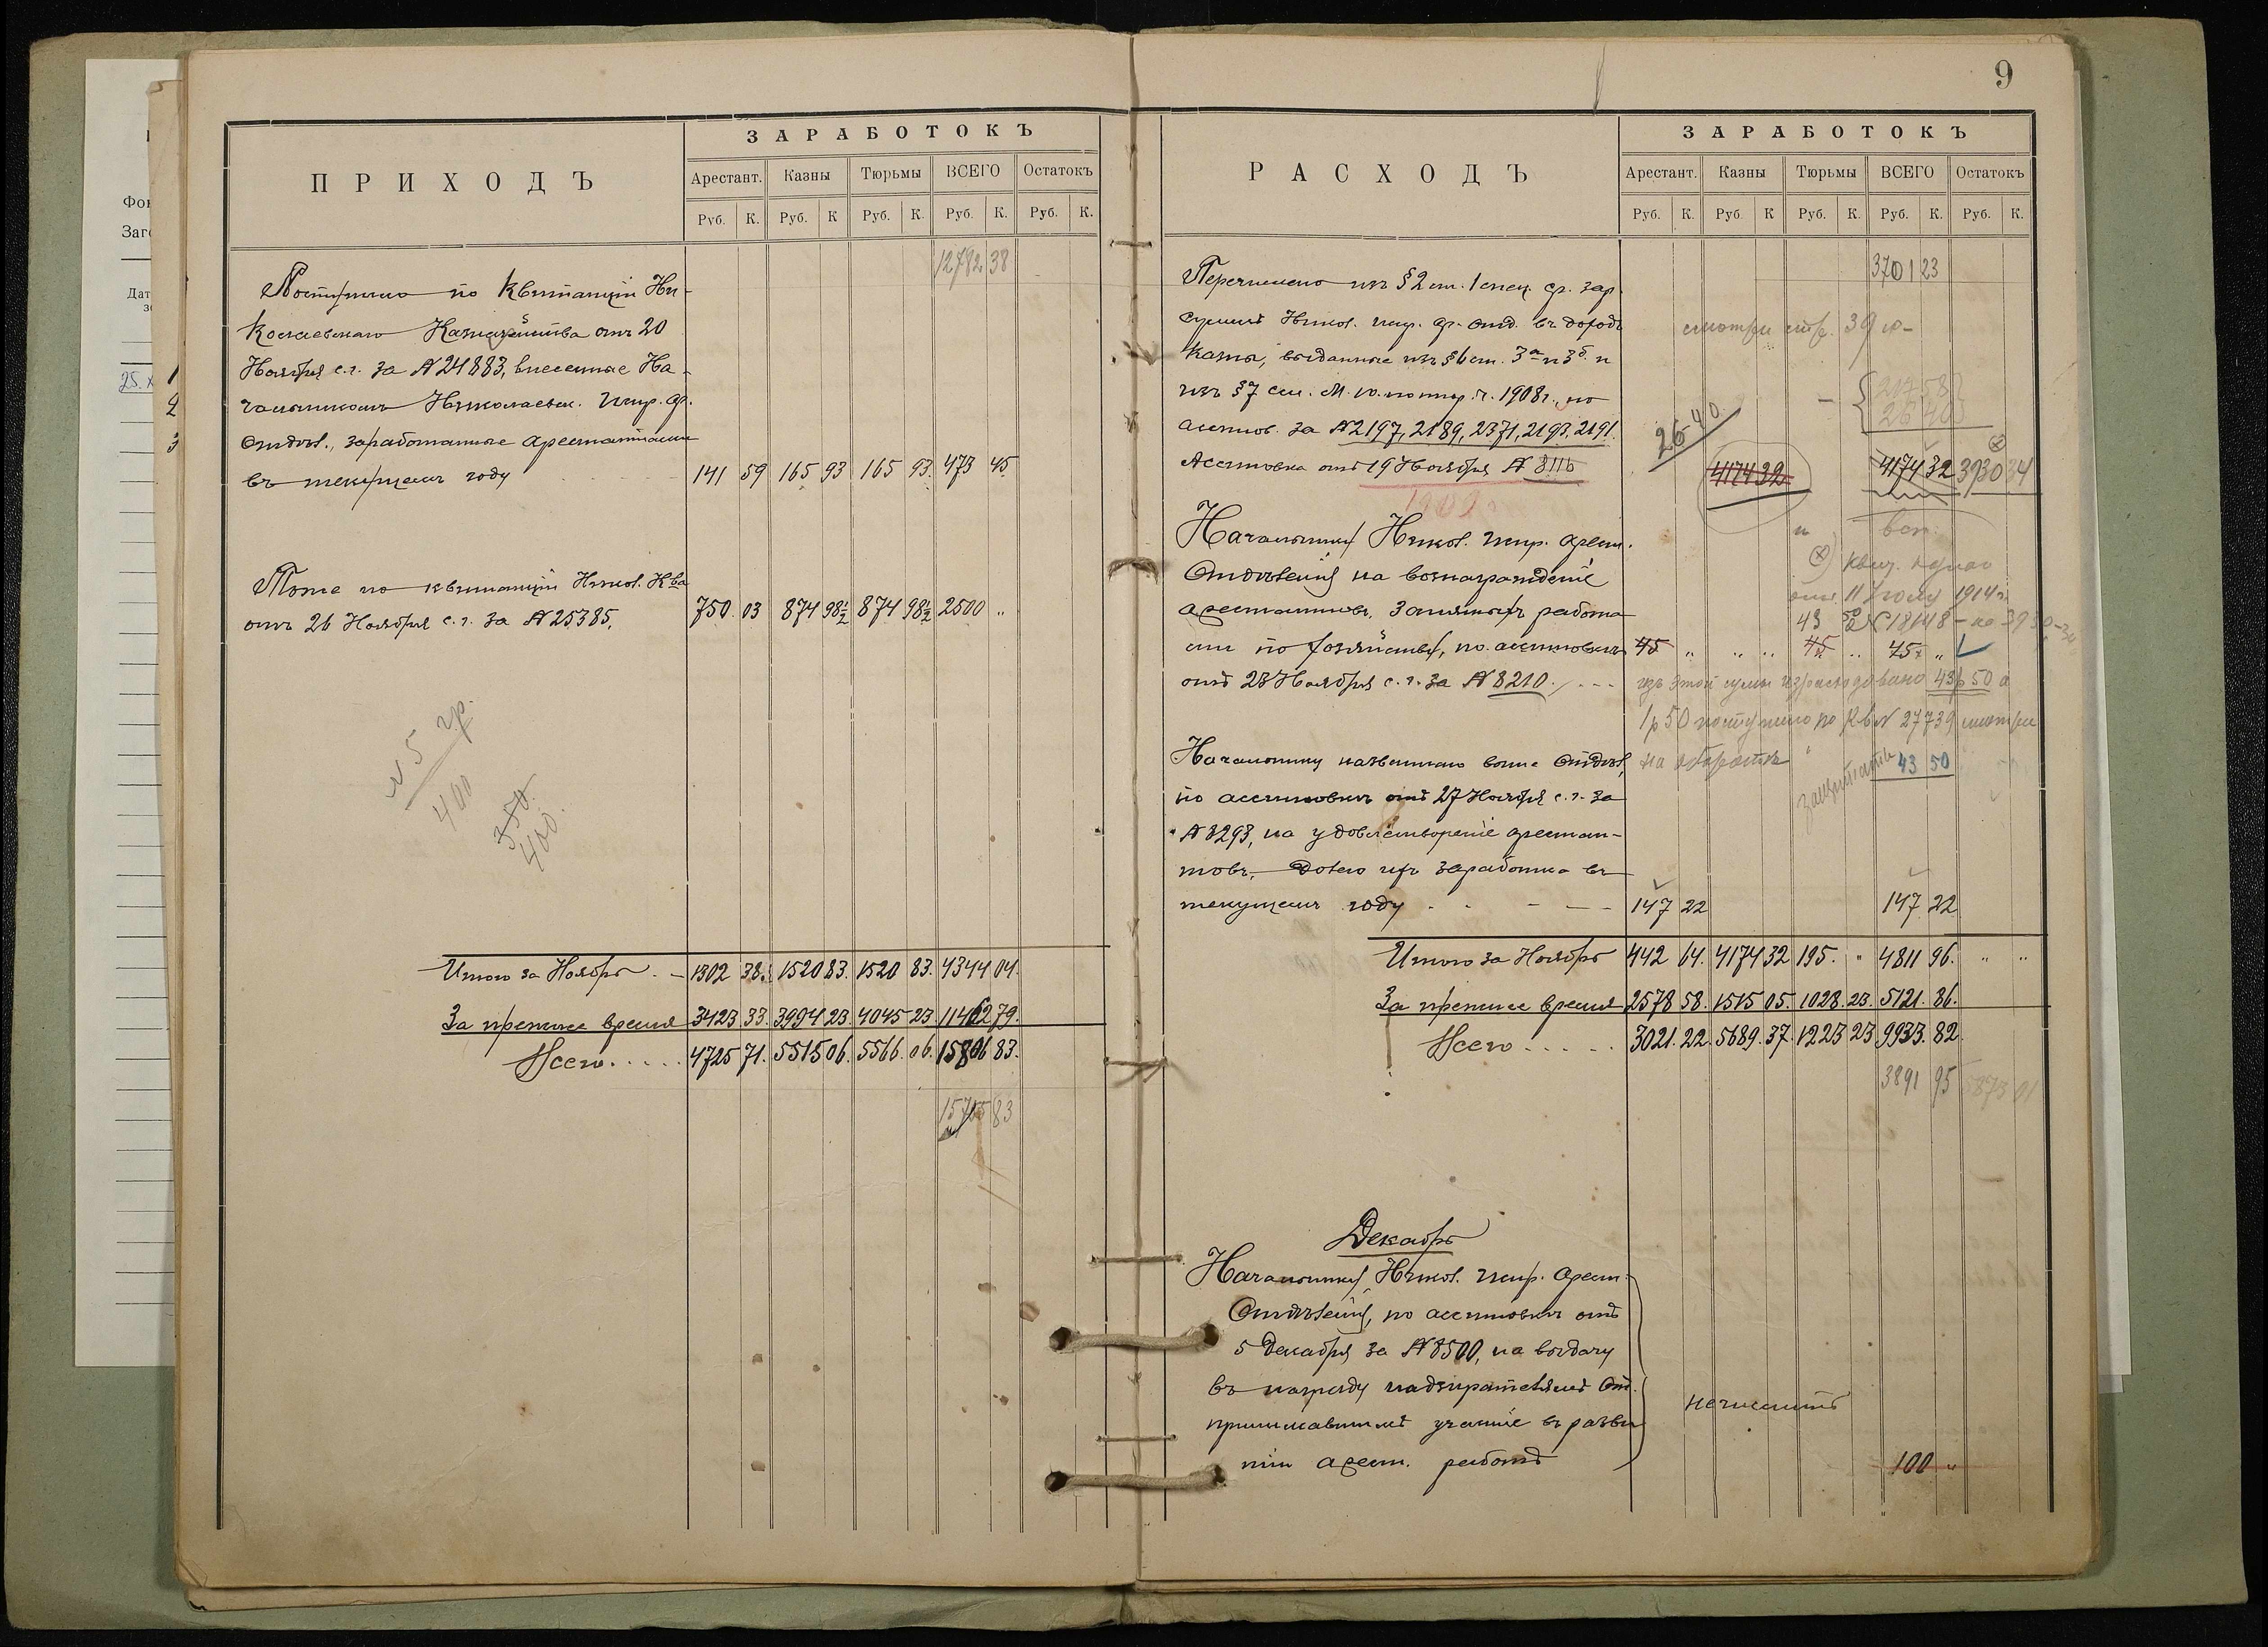 9
ПРИХОДЪ
ЗАРАБОТОКЪ
Арестант. Казны Тюрьмы ВСЕГО Остатокъ
Руб. К. Руб. К Руб. К. Руб. К. Руб. К.
12782 38
Поступило по квитанціи Ни-
колаевскаго Казначейства отъ 20
Ноября с.г. за № 24883, внесенные На-
чальникомъ Николаевск. Испр. Ар.
Отдѣл., заработанные арестантами
въ текущемъ году 141 59 165 93 165 93. 473 45
Тоже по квитанціи Никол. К-ва
отъ 26 Ноября с.г. за № 25385, 750 03 874 98½ 874 98½ 2500 "
400
350
400
Итого за Ноябрь 1302 38. 1520 83. 1520 83. 4344 04.
За прежнее время 3423 33. 3994 23 4045 23 11462 79.
Всего 4725 71. 5515 06. 5566. 06. 15806 83.
15755 83
РАСХОДЪ
ЗАРАБОТОКЪ
Арестант. Казны Тюрьмы ВСЕГО Остатокъ
Руб. К. Руб. К Руб. К. Руб. К. Руб. К.
3701 23
Перечислено изъ § 2 ст. 1 спец. ср. зар.
суммъ Никол. испр. ар. отд. въ доходъ
смотри стр. 39
Казны, выданные изъ § 6 ст. 3а и 3б. и
изъ § 7 см. М. Ю. по тюр. ч. 1908 г., по
26 40
ассигнов. за № 2197, 2189, 2371, 2193, 2191.
26-40.
Ассигновка отъ 19 Ноября № 8116 4174 32 4174 32 3930 34
1909
Начальнику Никол. испр. арест.
Отдѣленія на вознагражденіе
отъ 11 Іюня 1914 г.
арестантовъ, занятыхъ работа-
43 50 № 18148 - на 3930-34
ми по хозяйству, по ассигновкѣ 45 " " " 45 " 45 "
отъ 23 Ноября с.г. за № 8210.
изъ этой суммы израсходовано 43 р 50 а
1 р 50 поступило по Кв № 27739 смотри
на оборотѣ
Начальнику названнаго выше Отдѣл,
43 50
по ассигновкѣ отъ 27 Ноября с.г. за
№ 8293, на удовлетвореніе арестан-
товъ, долею ихъ заработка въ
текущемъ году 147 22 147 22
Итого за Ноябрь 442 64. 4174 32 195. " 4811 96. " "
За прежнее время 2578 58. 1515 05. 1028. 23. 5121. 86.
Всего 3021. 22. 5689. 37. 1223 23 9933. 82.
3891 95 5873 01
Декабрь
Начальнику Никол. испр. Арест.
Отдѣленія, по ассигновкѣ отъ
5 Декабря за № 8500, на выдачу
въ награду надзирателямъ Отд.
принимавшимъ участіе въ разви-
тіи арест. работъ
не числить
100 "